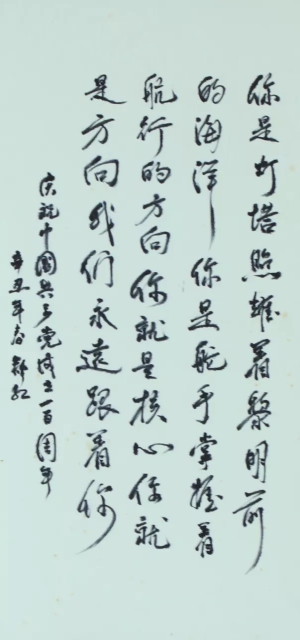 你是灯塔照耀着黎明前
的海洋你是舵手掌握着
航行的方向你就是核心你就
是方向我们永遠跟着你
庆祝中國共产党成立一百周年
辛丑年春